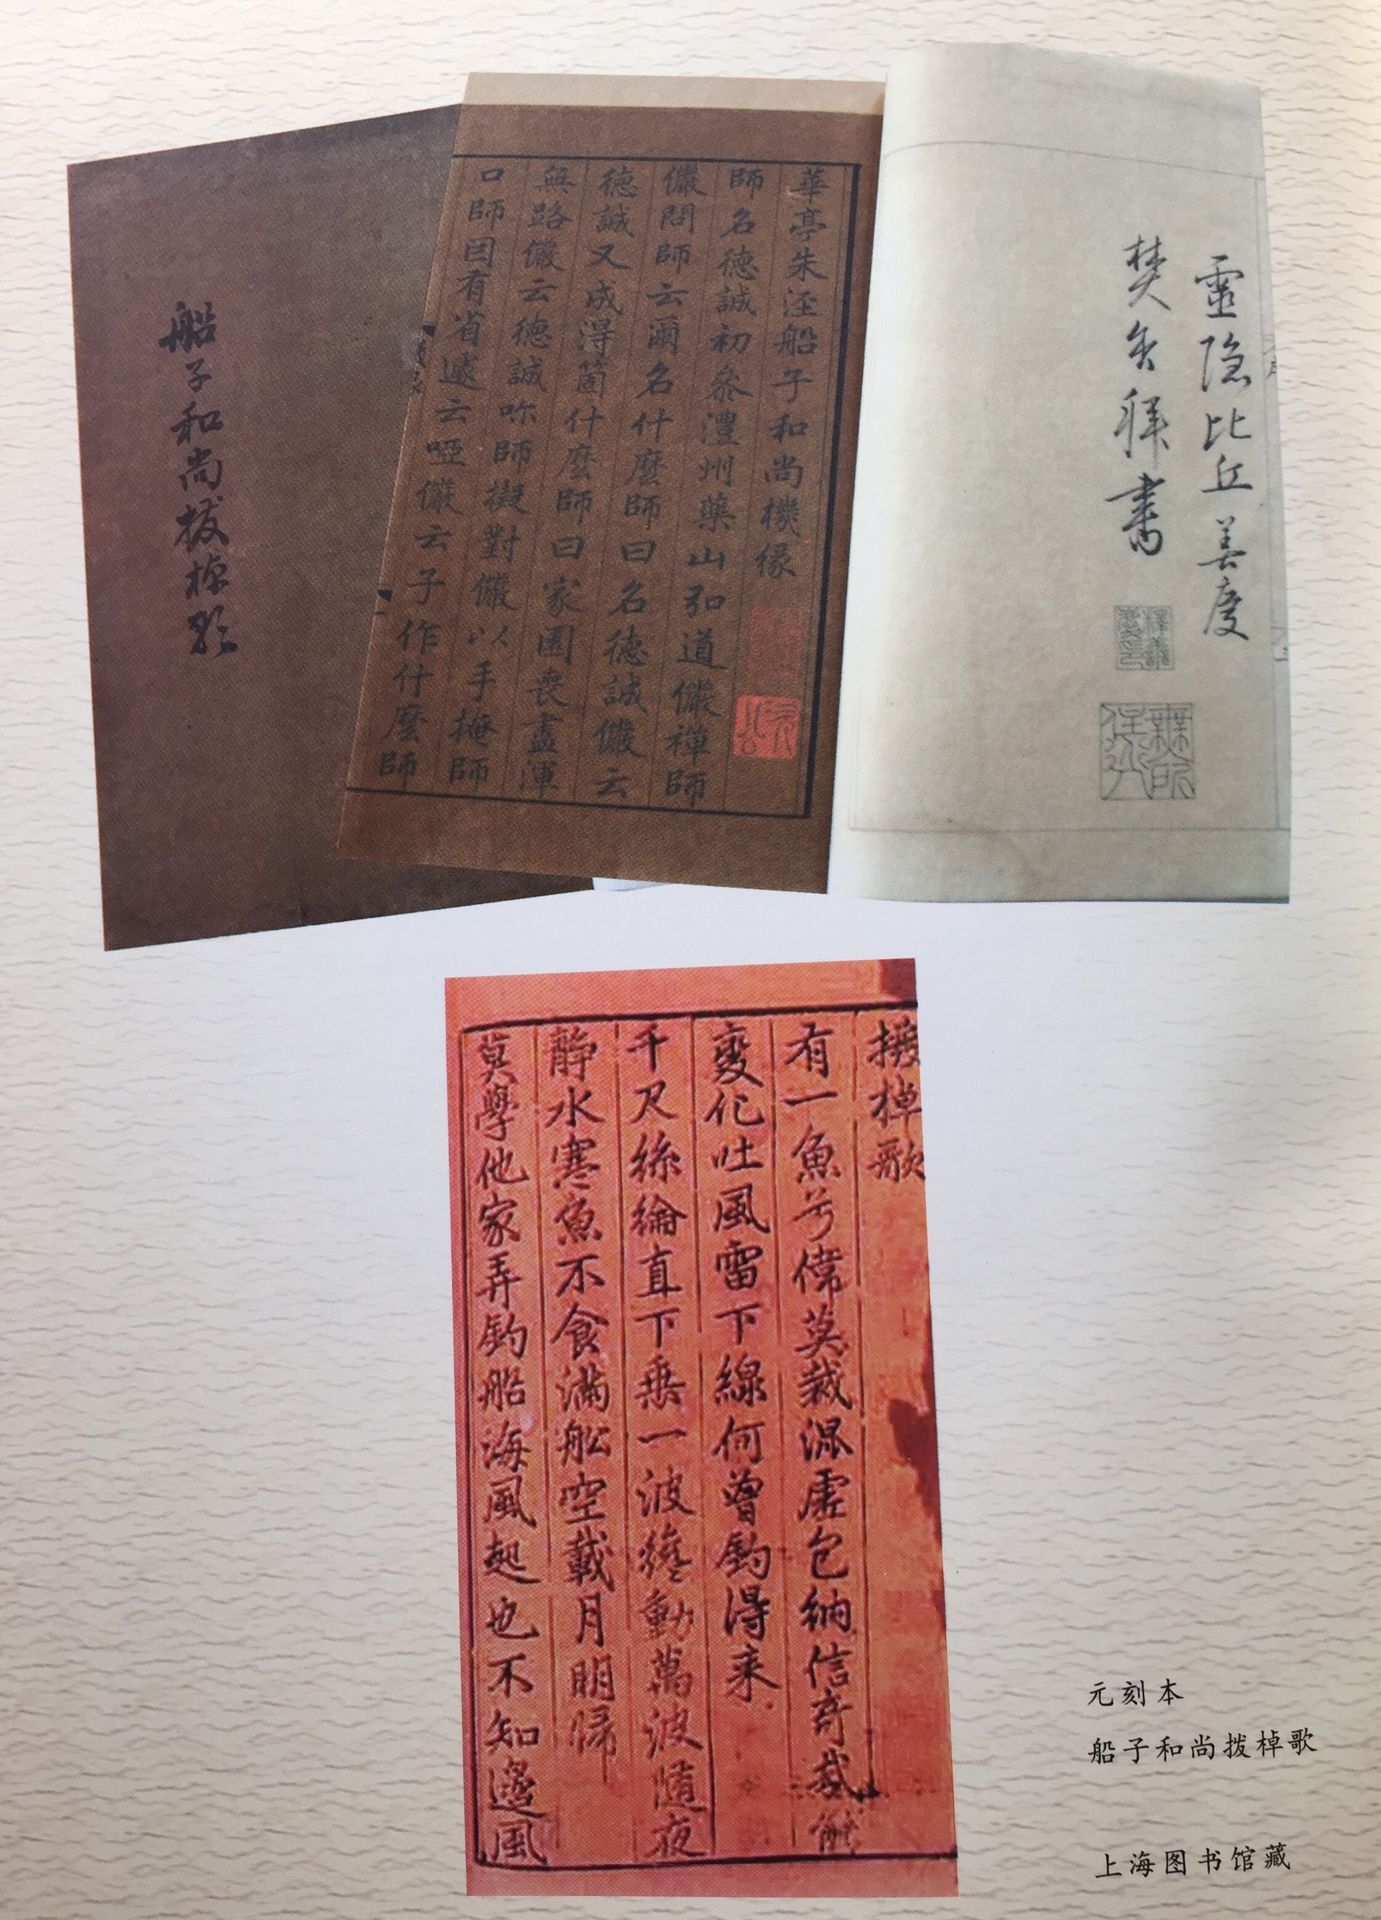 船子和尚撥棹歌
華亭朱涇船子和尚機緣
師名德誠初叅澧州藥山弘道儼禪師
儼問師云爾名什麼師曰名德誠儼云
德誠又成得箇什麼師曰家園喪盡渾
無路儼云德誠咻師擬對儼以手掩師
口師因有省遽云啞儼云子作什麼師
靈隐比丘
焚香拜書
撥棹歌
有一魚兮偉莫裁混虛包納信奇哉能
變化吐風雷下線何曾釣得来
千尺絲綸直下垂一波纔動萬波隨夜
靜水寒魚不食滿舩空載月明歸
莫學他家弄釣船海風起也不知邊風
元刻本
船子和尚拨棹歌
上海图书馆藏